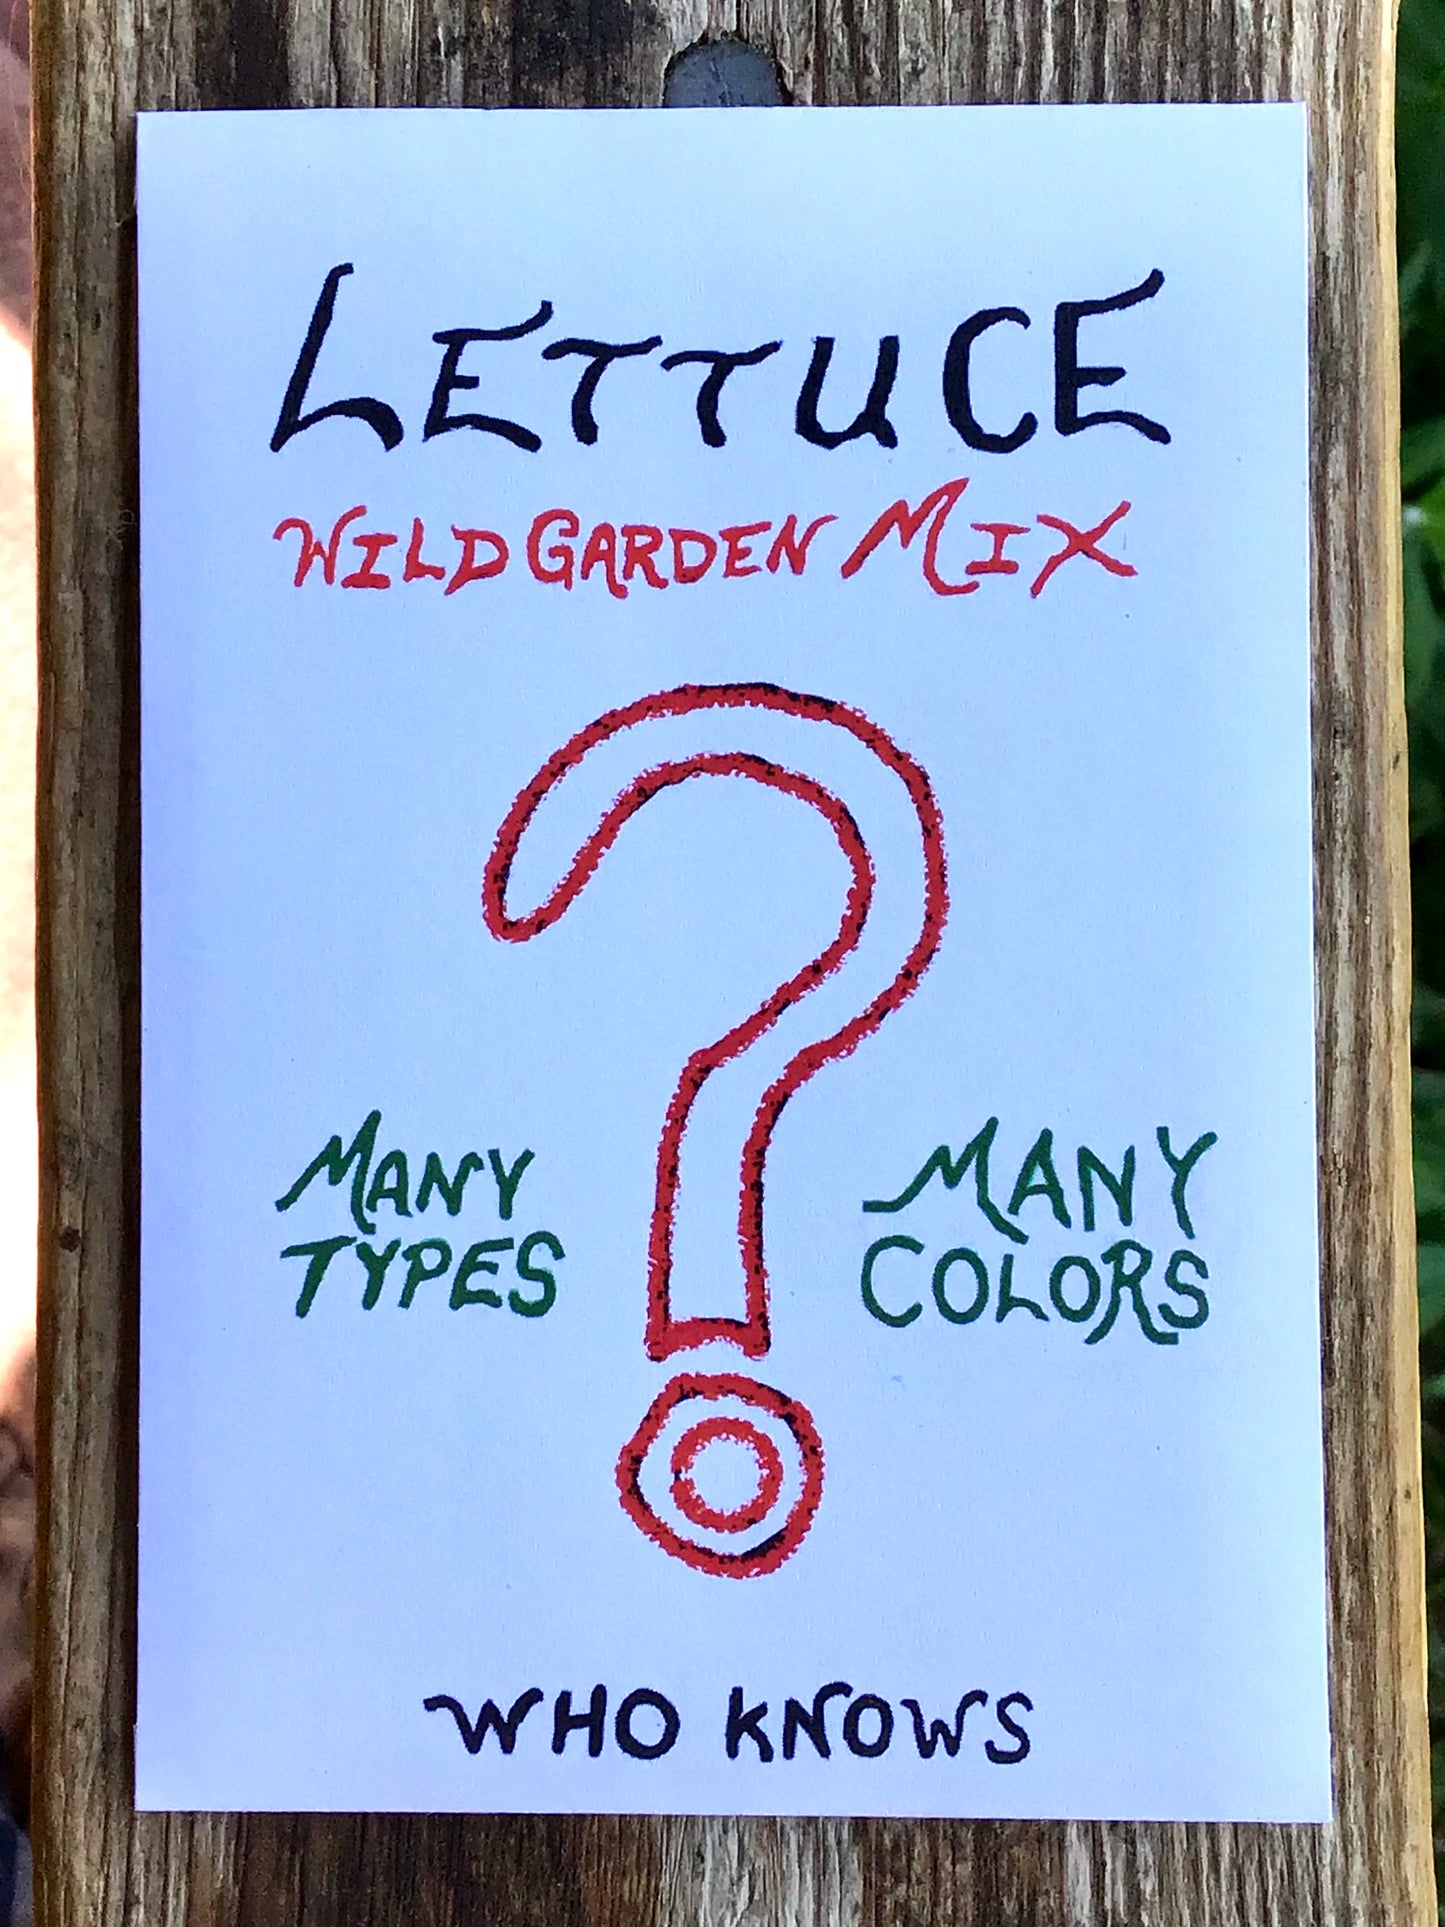 LETTUCE
WILD GARDEN MIX
?
MANY
TYPES
MANY
COLORS
WHO KNOWS